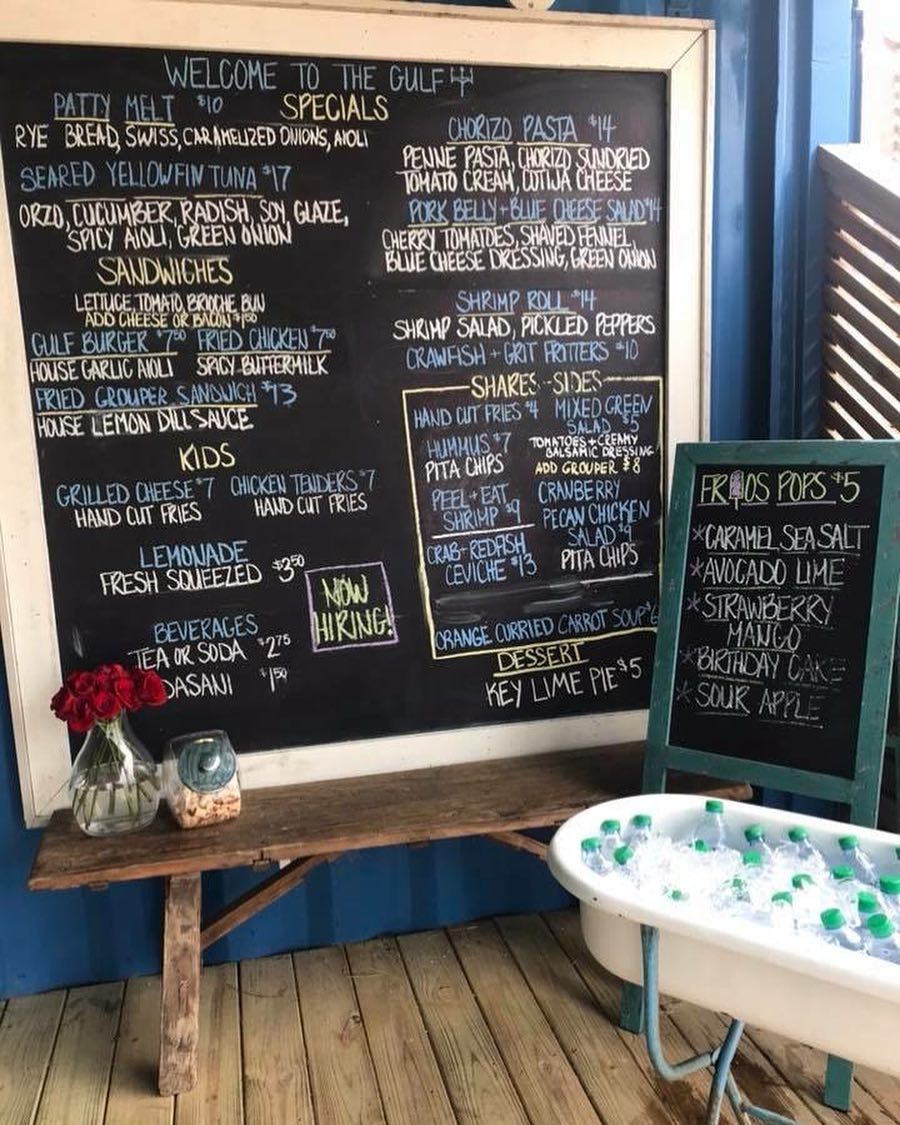 WELCOME TO THE GULF
SPECIALS
PATTY MELT $10
RYE BREAD, SWISS, CARAMELIZED ONIONS, AIOLI
SEARED YELLOWFIN TUNA $17
ORZO, CUCUMBER, RADISH, SOY GLAZE,
SPICY AIOLI, GREEN ONION
SANDWICHES
LETTUCE, TOMATO, BRIOCHE BUN
ADD CHEESE OR BACON $1.50
GULF BURGER $7.50 FRIED CHICKEN $7.50
HOUSE GARLIC AIOLI SPICY BUTTERMILK
FRIED GROUPER SANDWICH $13
HOUSE LEMON DILL SAUCE
KIDS
GRILLED CHEESE $7 CHICKEN TENDERS $7
HAND CUT FRIES HAND CUT FRIES
LEMONADE
FRESH SQUEEZED $3.50
BEVERAGES
TEA OR SODA $2.75
DASANI $1.50
NOW
HIRING!
CHORIZO PASTA $14
PENNE PASTA, CHORIZO, SUNDRIED
TOMATO CREAM, COTIJA CHEESE
PORK BELLY + BLUE CHEESE SALAD $14
CHERRY TOMATOES, SHAVED FENNEL,
BLUE CHEESE DRESSING, GREEN ONION
SHRIMP ROLL $14
SHRIMP SALAD, PICKLED PEPPERS
CRAWFISH + GRIT FRITTERS $10
SHARES - SIDES
HAND CUT FRIES $4
HUMMUS $7
PITA CHIPS
PEEL + EAT
SHRIMP $9
CRAB + REDFISH
CEVICHE $13
MIXED GREEN
SALAD $5
TOMATOES + CREAMY
BALSAMIC DRESSING
ADD GROUPER $8
CRANBERRY
PECAN CHICKEN
SALAD $9
PITA CHIPS
ORANGE CURRIED CARROT SOUP $6
DESSERT
KEY LIME PIE $5
FRIOS POPS $5
*CARAMEL SEA SALT
*AVOCADO LIME
*STRAWBERRY
MANGO
*BIRTHDAY CAKE
*SOUR APPLE